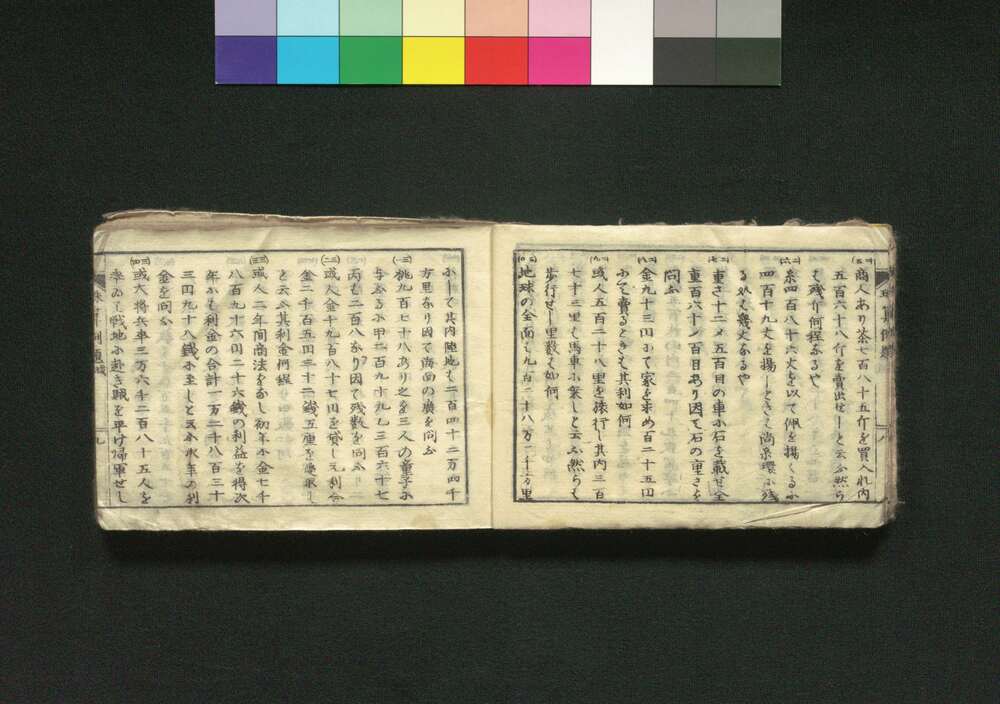 (二五)
商人あり茶七百八十五斤を買入れ内
五百六十八斤を賣出せしと云ふ然ら
ば残斤何程なるや
(二六)
糸四百八十六丈を以て佩を揚くるふ
四百十九丈を揚しときハ尚糸環ふ残
る処ハ幾丈なるや
(二七)
重さ十二メ五百目の車小石を載せ全
重百六十メ百目あり因て石の重さを
問ふ
(二八)
金九十三円にて家を求め百二十五円
ふて賣るときハ其利如何
(二九)
或人五百二十八里を旅行し其内三百
七十三里ハ馬車小乗しと云ふ然らバ
歩行せし里数ハ如何
(三十)
地球の全面ハ九百二十八万一千方里
小して其内陸地ハ二百四十二万四千
方里なり因て海面の廣を問ふ
(三一)
桃九百七十八あり之を三人の童子小
与ふる小甲ハ二百九十九乙三百六十七
丙ハ二百八なり因て残数を問ふ
(三二)
或人金千九百八十七円を貸し元利合
金二千百五円三十二銭五厘を受取し
と云ふ其利金何程
(三三)
或人二年間商法をなし初年小金七千
八百九十六円二十六銭の利益を得次
年小至利金の合計一万二千八百三十
三円九十八銭小至しと云ふ次年の利
金を問ふ
(三四)
或大将兵卒三万六千二百八十五人を
率ゐて戦地小赴き賊を平け帰軍せし